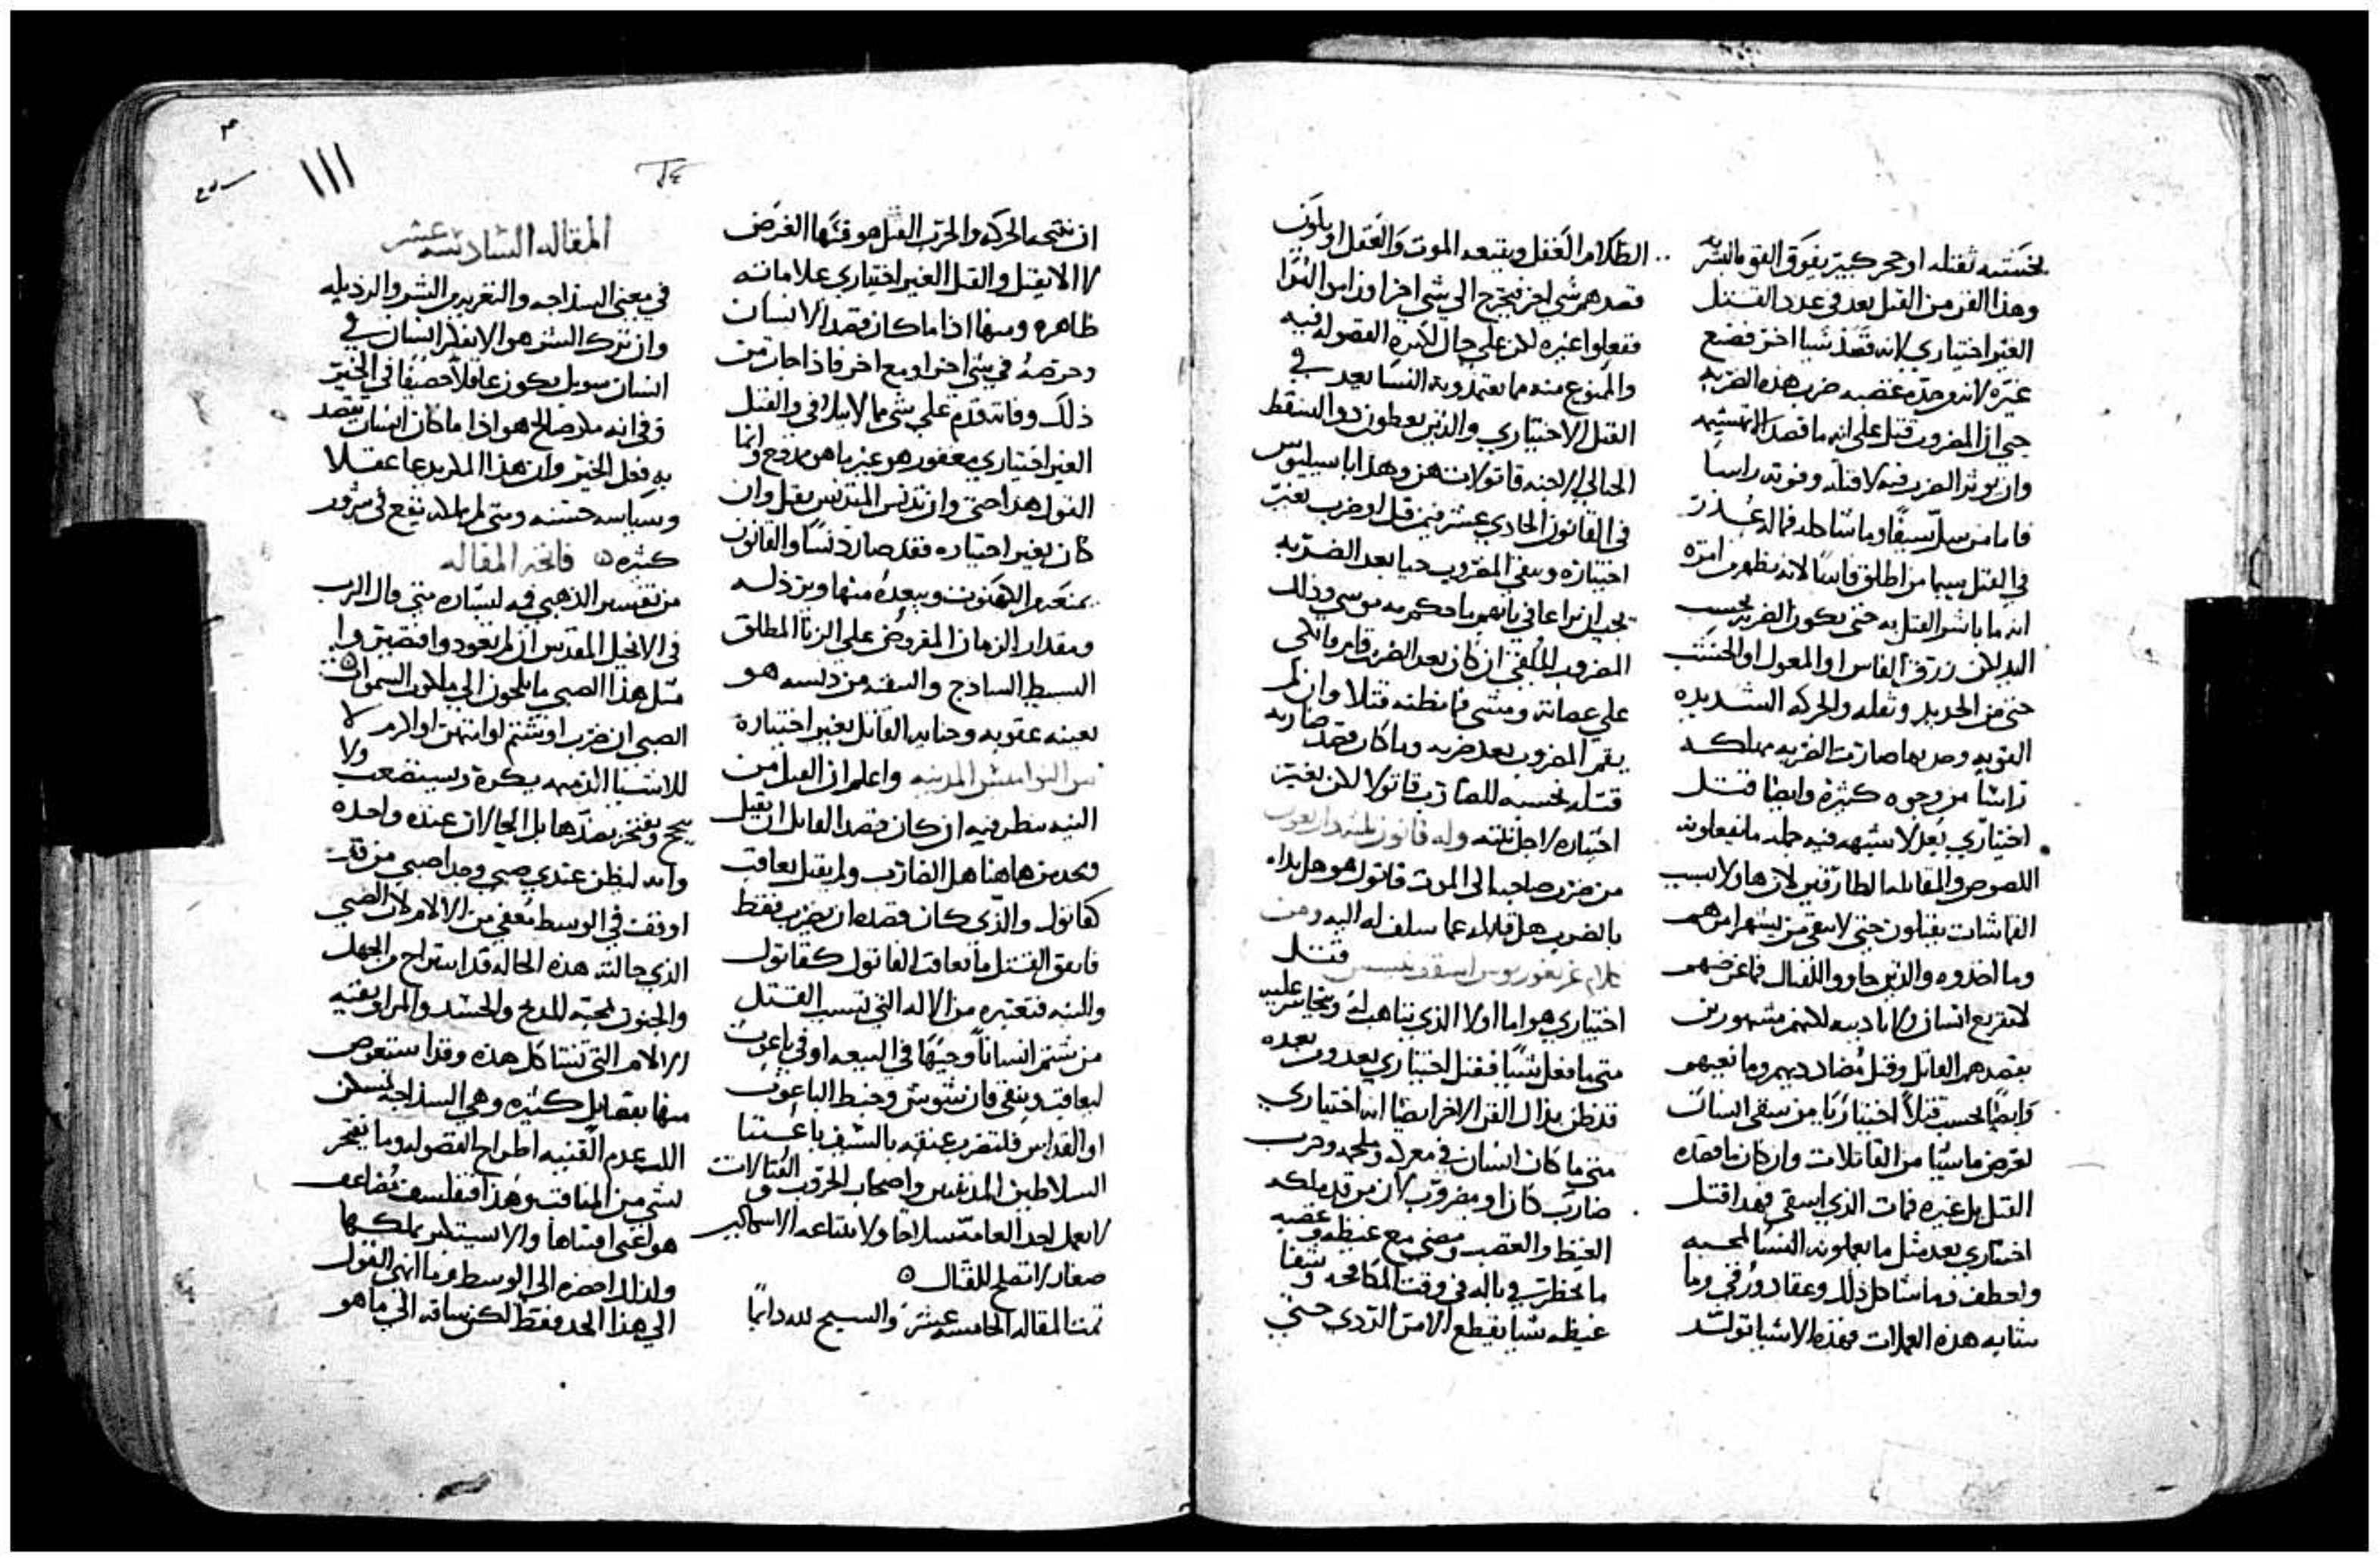 بخشبه ثقيله او حجر كبير يفوق القوه البشريه
وهذا الفن من القتل يعد في عدد القتل
الغير اختياري لانه قصد شيا اخر فصنع
غيره لانه وحده غضبه ضرب هذه الضربه
حتى ان المضروب قتل على انه ما قصد الا تمشيه
وان يوثر الضرب فيه لا قتله وفوته راسا
فاما من سل سيفا وما شاكله فماله عذر
في القتل سيما من اطلق فاسا لانه يظهر من امره
انه ما باشر القتل به حتى يكون الضرب بحسب
اليد لان زرق الفاس او المعول او الخشب
حتى من الحديد وثقله والحركه الشديده
القويه وحدتها صارت الضربه مهلكه
راسا من وجوه كثيره وايضا قتل
اختياري يعد لا شبهه فيه جمله ما يفعلونه
اللصوص والمقابله الطارقين لان هاولا بسبب
القماشات يقتلون حتى لا يبقى من يشهر امرهم
وما اخذوه والذين جاووا للقتال فما غرضهم
لا تقريع انسان ولا تاديبه لكنهم مشهورين
بقصدهم القاتل وقتل مضاددهم وما تعبهم
وايضا يحسب قتلا اختياريا من سقى انسان
لغرض ما شيا من القاتلات وان كان ما قصده
القتل بل غيره فمات الذي اسقي فهذا قتل
اختياري يعد مثل ما يعملونه النسا لمحبه
واعطف فما شاكل ذلك وعقادورقي وما
شابه هذه العملات فهذه الاشيا تولد
الظلام العقل ويتبعه الموت والعقل او يلون
قصدهم شي اخر فيخرج الى شي اخر اوزاس النوا
ففعلوا غيره لكن على حال لاكثره الفضوله فيه
والممنوع منه ما يعتمدونه النسا يعد في
القتل الاختياري والذين يعطون دوا لسقط
الحبالى الاجنه قاتولات هن وهذا باسيليوس
في القانون الحادي عشر فيمن قتل او ضرب بغير
اختياره وبقي المضروب حيا بعد الضربه
يجب ان يراعا في بابهم ما حكم به موسى وذلك
المضروب الملقي ان كان بعد الضرب قام وما تكى
على عصاته ومشى فما نظنه قتلا وان لم
يقم المضروب بعد ضربه وما كان قصد ضاربه
قتله نحسبه للضارب قاتولا لكن بغير
اختياره لاجل نيته وله قانون ثلثه واربعون
من ضرب صاحبه الى الموت قاتول هو هل بداه
بالضرب هل قابله عما سلف له اليه ومن
كلام غريغوريوس اسقف نيسس قتل
اختياري هو اما اولا الذي يتاهب له ويتجاسر عليه
متى ما فعل شيا فقتل اختياري يعد ومن بعده
قد ظن بذاك الفن الاخر ايضا انه اختياري
متى ما كان انسان في معركه وملحمه وحرب
ضارب كان او مضروب لان من قد ملكه
الغيظ والغضب ومضى مع غيظه وغضبه
ما يخطر في باله في وقت المكافحه وشفا
غيظه شيا يقطع الامر الردي حتى
ان نتيجه الحركه والحرب القتل هو فيها الغرض
لا الا يقتل والقتل الغير اختياري علاماته
ظاهره ومنها اذا ما كان قصد الانسان
وحرصه في شي اخر او مع اخر فاذا جاز من
ذلك وفاته قدم على شي مما لا يتلافى والقتل
الغير اختياري مغفور هو غير ما هو ممدوح وانما
القول هذا حتى وان تدنس المتدنس بقتل وان
كان بغير اختياره فقد صار دنسا والقانون
يمنعه من الكهنوت ويبعده منها ويرذله
ومقدار الزمان المفروض على الزنا المطلق
البسيط الساذج والسفه من دنسه هو
بعينه عقوبه وجنايه القاتل بغير اختياره
من النواميس المدنيه واعلم ان القتل من
النيه ينظر فيه ان كان قصد القاتل ان يقتل
وتحديدها هنا هل الضارب ولم يقتل يعاقب
كقاتول والذي كان قصده ان يضرب فقط
فاتفق القتل ما يعاقب القاتول كقاتول
والنيه فتعتبره من الاله التي تسبب القتل
من شتم انسانا وجيها في البيعه او في باعوث
ليعاقب وينفى فان شوش وخبط الباعوث
او القداس فلتضرب عنقه بالسيف باعستنا
السلاطين المذنبين واصحاب الحروب القتالات و
لا يعمل احد العامه سلاحا ولا يبتاعه الا سكاكين
صغار لا تصلح للقتال ه
تمت المقاله الخامسه عشر والسبح لله دايما
111
المقاله السادسه عشر
في معنى السذاجه والتغرير من الشر والرذيله
وان ترك الشر هو الا يفكر انسان في
انسان سو بل يكون عاقلا حصيفا في الخير
وفي انه ملاه صالح هو اذا ما كان انسان يقصد
به فعل الخير وان هذا الملا يدعا عقلا
وسياسه حسنه ومتى لم يملاه يقع في شرور
كثيره ه فاتحه المقاله
من تفسير الذهبي فمه لبشاره متى قال الرب
في الانجيل المقدس ان لم تعودوا فتصيروا
مثل هذا الصبي ما تلجون الى ملكوت السموات ه
الصبي ان ضرب او شتم او انتهر او الام لا
للاشيا الذميه يكره ويستصعب ولا
يبجح ويفتخر بضدها بل الحالان عنده واحده
وانه ليظن عندي صبي وجدا صبي من قد
اوقف في الوسط معفي من الالام لان الصبي
الذي حالته هذه الحاله قد استراح من الجهل
والجنون لمحبه المدح والحسد والمراوبقيه
الالام التي تشاكل هذه وقد استعوض
منها بفضايل كثيره وهي السذاجه تسكن
اللب عدم القنيه اطراح الفضوله وما يفتخر
لشي من المناقب وهذا فتفلسف مضاعف
هو اعني اقتناها والا يستكبر بملكها
ولذلك احضره الى الوسط وما انهى القول
الى هذا الحد فقط لكن ساقه الى ما هو